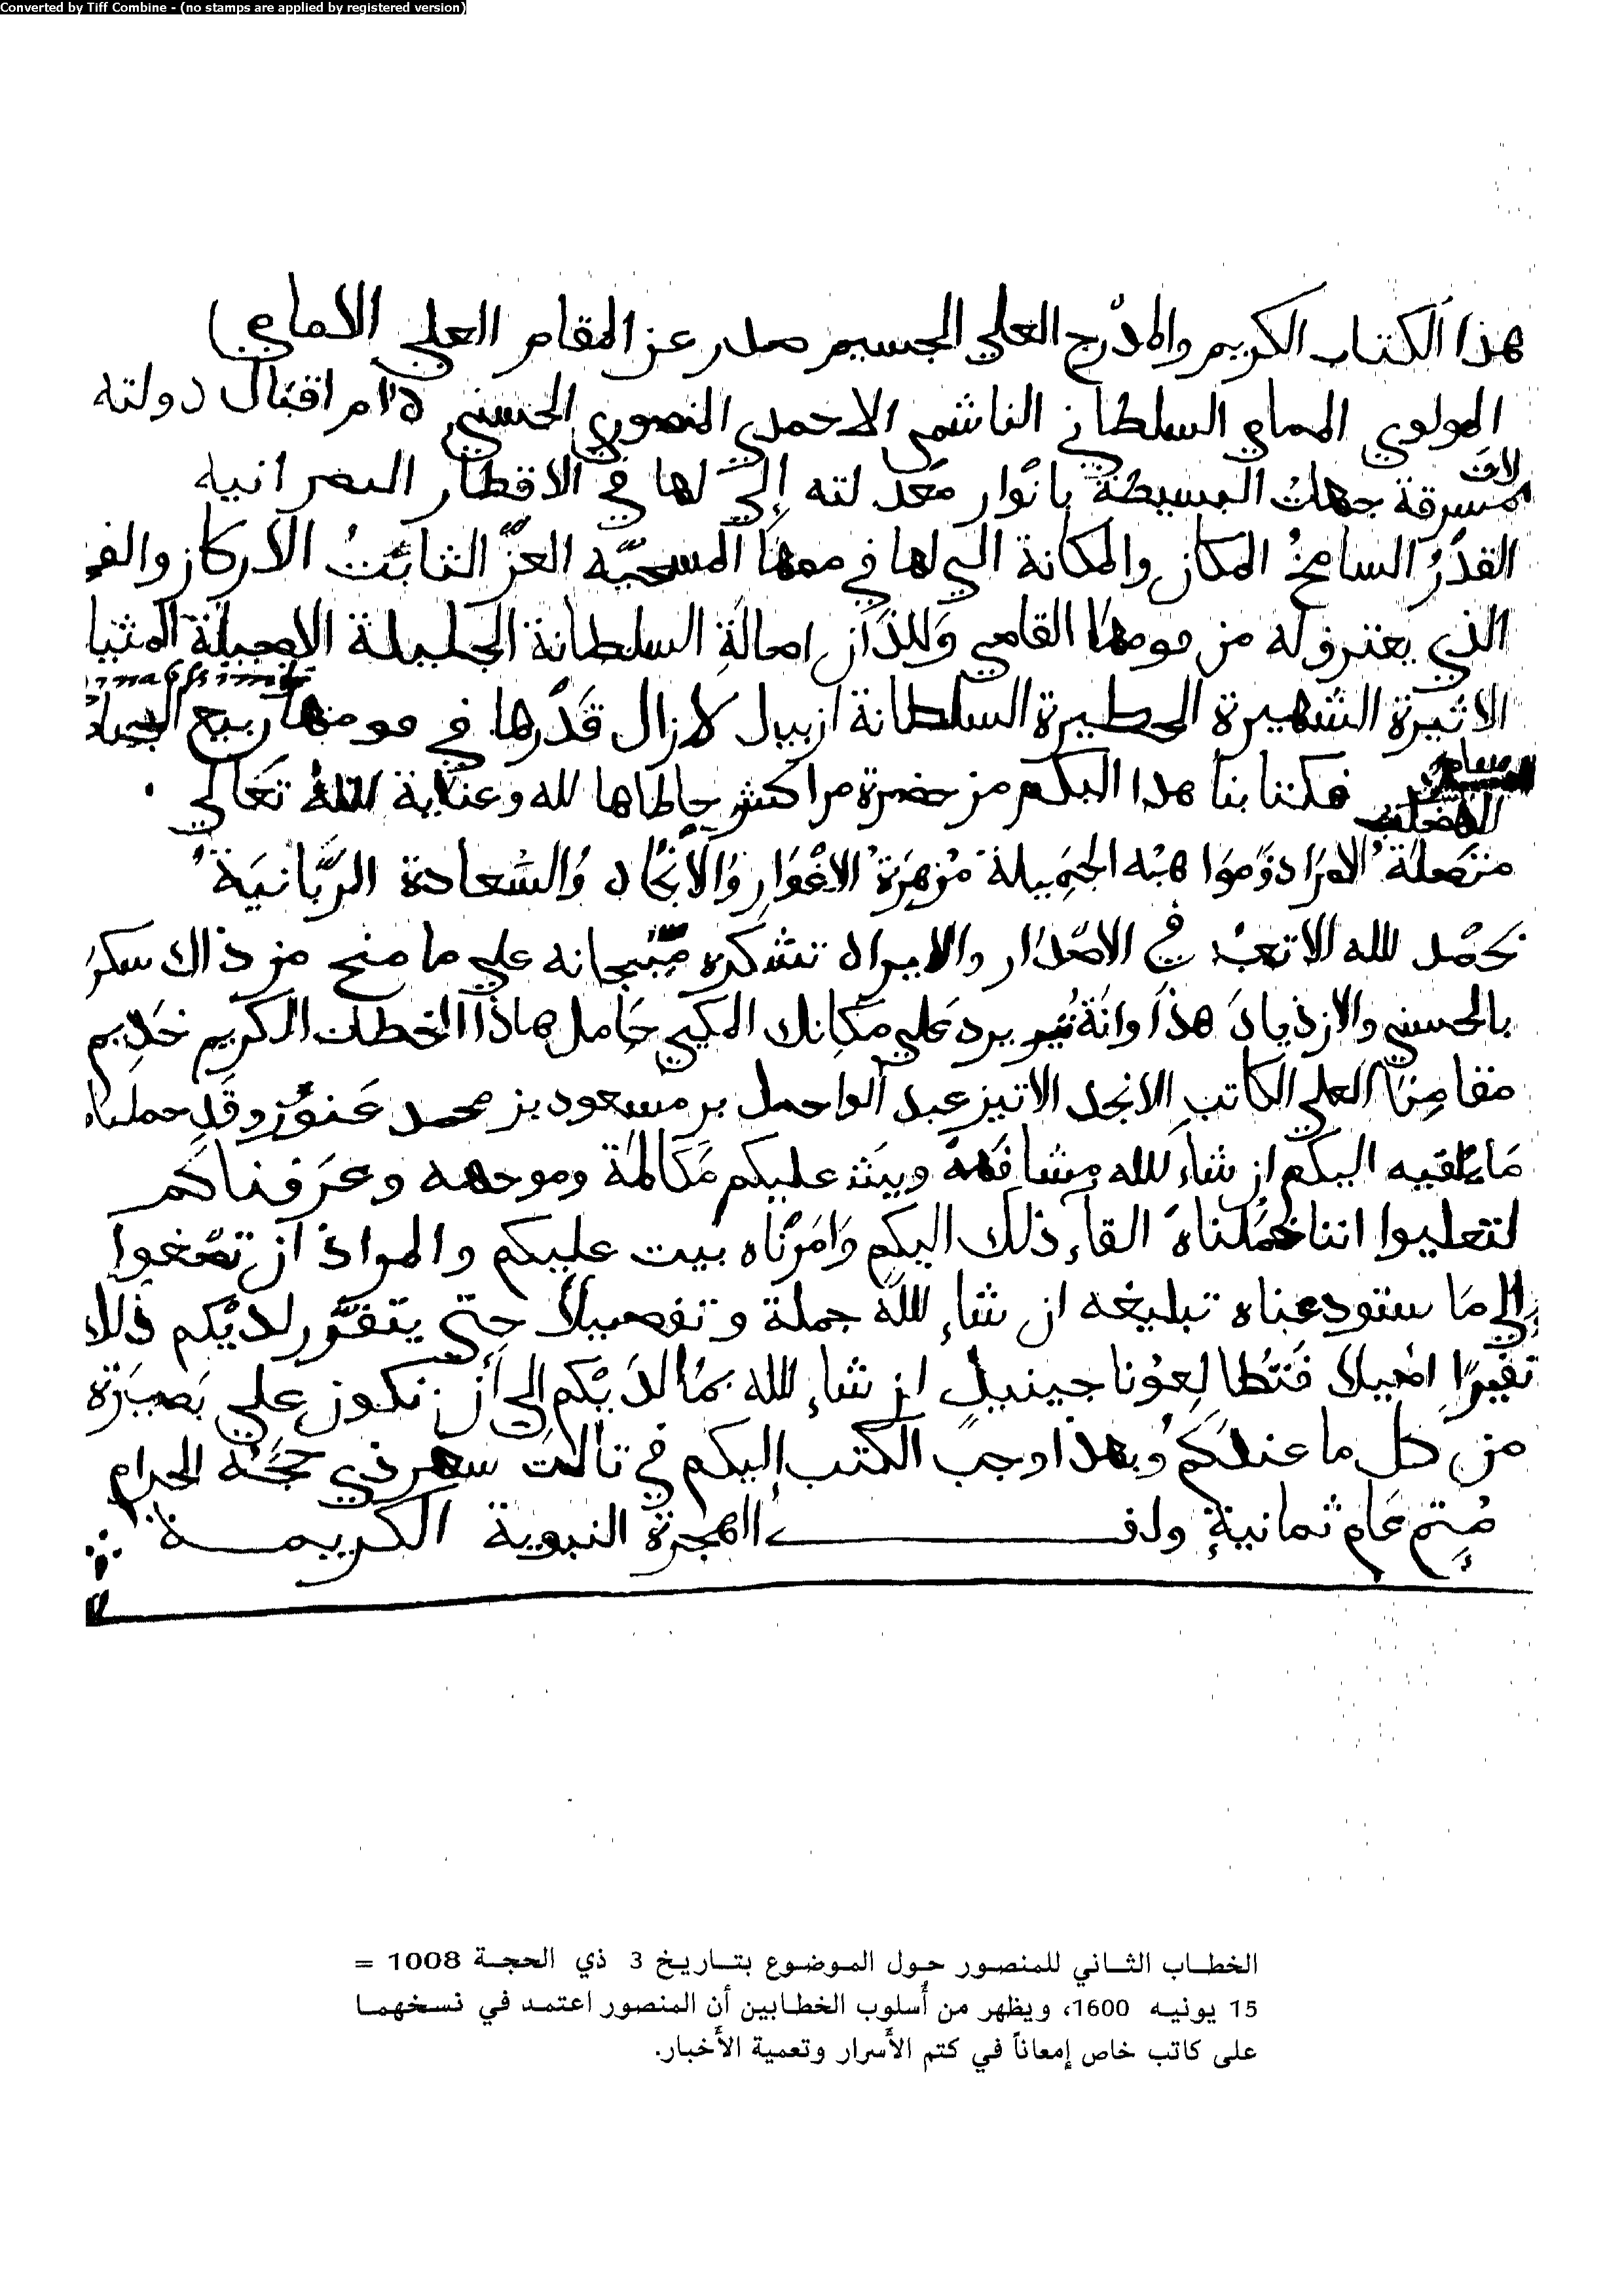 Converted by Tiff Combine - (no stamps are applied by registered version)
هذا الكتاب الكريم والمدرج العلي الجسيم صدر عن المقام العلي الامامي
المولوي السلطاني الاحمدي المنصوري الحسني دام اقبال دولته
مسرقة جهات البسيطة بانوار معدلته إلى لها في الاقطار النصرانيه
القدر السامخ المكان والمكانة التي لها في المسحيه العز الثابت الاركان
الذي يعترف له من قومها القاصي اصالة السلطانة الجليلة الاصيلة المثيلة
الاثيرة الشهيرة الخطيرة السلطانة ازبيل لازال قدرها في قومها ربيع
فكتابنا هدا اليكم من حضرة مراكش حاطها لله وعناية الله تعالى
متصلة الجميلة مزهرة الاغوار والانجاد والسعادة الربانية
نحمد لله في الاصدار والايراد نشكره سبحانه على ما منح من ذالك سكر
بالحسنى والازدياد هذا وانه يرد على مكانك المكي حامل هاذا الخطاب الكريم خديم
مقامنا العلي الكاتب الانجد الاثير عبد الواحد بن مسعود بن محمد عنور وقد حملناه
ما يلقيه اليكم ان شاء لله مشافهة ويبث عليكم مكالمة وموجهه وعرفناكم
لتعليوا اننا حملناه القاء ذلك اليكم وامرناه بيت عليكم والمراد ان تصغوا
إلى ما ستودعناه تبليغه ان شاء لله جملة وتفصيلا حتى يتقرر لديكم ذلك
تقيرا اصيلا فتطالعونا حينيذ ان شاء لله بما لديكم إلى أن نكون على بصيرة
من كل ما عندكم وبهذا وجب الكتب إليكم في ثالث سهر ذي حجة الحرام
متم عام ثمانية والف الهجرة النبوية الكريمة
الخطاب الثاني للمنصور حول الموضوع بتاريخ 3 ذي الحجة 1008 =
15 يونيه 1600، ويظهر من أسلوب الخطابين أن المنصور اعتمد في نسخهما
على كاتب خاص إمعاناً في كتم الأسرار وتعمية الأخبار.